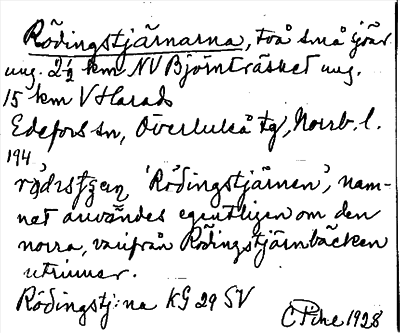 Rödingstjärnarna, två små sjöar
ung. 2½ km NV Björnträsket ung.
15 km V Harads
Edefors sn, Överluleå tg, Norrb. l.
194
'Rödingstjärnen', nam-
net användes egentligen om den
norra, varifrån Rödingstjärnbäcken
utrinner.
Rödingstj:na KG 29 SV
1928